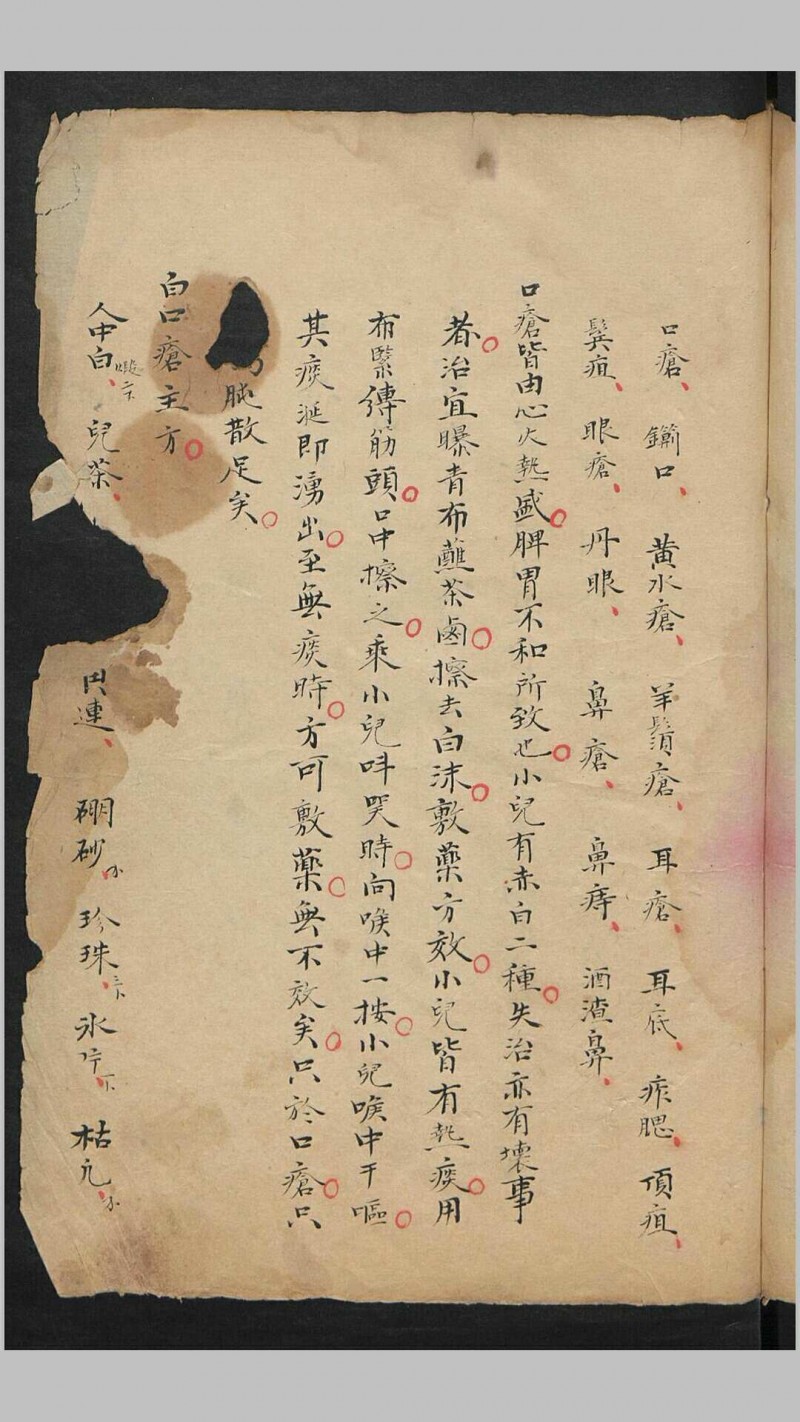 口瘡、 鎖口、 黃水瘡、 羊鬚瘡、 耳瘡、 耳底、 痄腮、 頂疽、
鬓疽、 眼瘡、 丹眼、 鼻瘡、 鼻痔、 酒渣鼻、
口瘡皆由心火熱盛○脾胃不和所致也○小兒有赤白二種○失治亦有壞事
者○治宜曝青布蘸茶鹵○擦去白沫○敷藥方效○小兒皆有熱痰○用
布緊縛筋頭○口中擦之○乘小兒呌哭時○向喉中一按○小兒喉中干嘔○
其痰涎即湧出○至無痰時○方可敷藥○無不效矣○只於口瘡○只
脏散足矣○
白口瘡主方○
人中白、 兒茶、 連、 硼砂、 珍珠、 氷片、 枯凡、